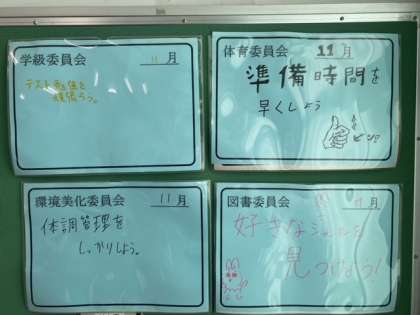 学級委員会 11月
テスト勉強を
頑張ろう。
体育委員会 11月
準備時間を
早くしよう
ビシッ
環境美化委員会 11月
体調管理を
しっかりしよう。
図書委員会 11月
好きなジャンルを
見つけよう!